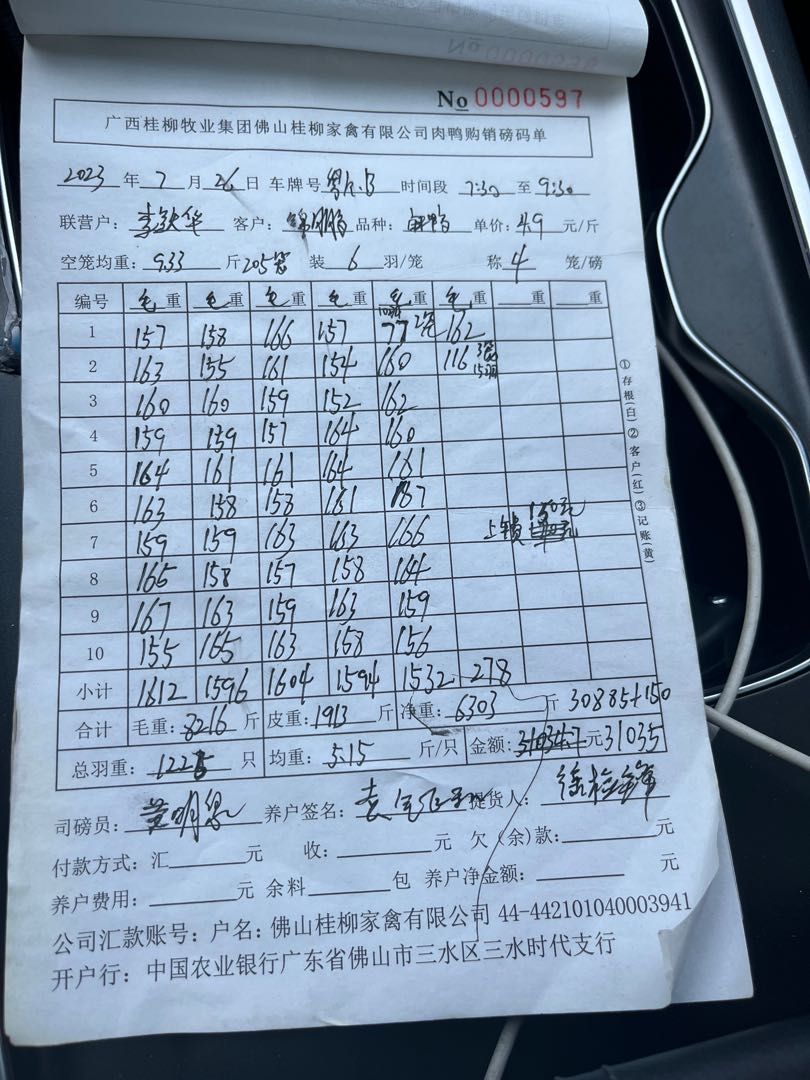 No 0000597
广西桂柳牧业集团佛山桂柳家禽有限公司肉鸭购销磅码单
2023 年 7 月 26 日 车牌号 时间段 7:30 至 9:30
联营户: 李 华 客户: 品种: 单价: 4.9 元/斤
空笼均重: 9.33 斤 205笼 装 6 羽/笼 称 4 笼/磅
编号 毛重 毛重 毛重 毛重 毛重 毛重 重 重
1 157 158 166 157 77 2笼 162
2 163 155 161 154 160 116 3笼
3 160 160 159 152 162
4 159 159 157 164 160
5 164 161 161 164 161
6 163 158 158 161 167
150元
7 159 159 163 163 166 上锁
8 165 158 157 158 164
9 167 163 159 163 159
10 155 165 163 158 156
小计 1612 1596 1604 1594 1532 278
合计 毛重: 8216 斤 皮重: 1913 斤 净重: 6303 斤 30885+150
总羽重: 只 均重: 5.15 斤/只 金额: 元 31035
司磅员: 黄明 养户签名: 提货人:
付款方式: 汇 元 收: 元 欠(余)款: 元
养户费用: 元 余料 包 养户净金额: 元
公司汇款账号: 户名: 佛山桂柳家禽有限公司 44-442101040003941
开户行: 中国农业银行广东省佛山市三水区三水时代支行
①存根(白)②客户(红)③记账(黄)